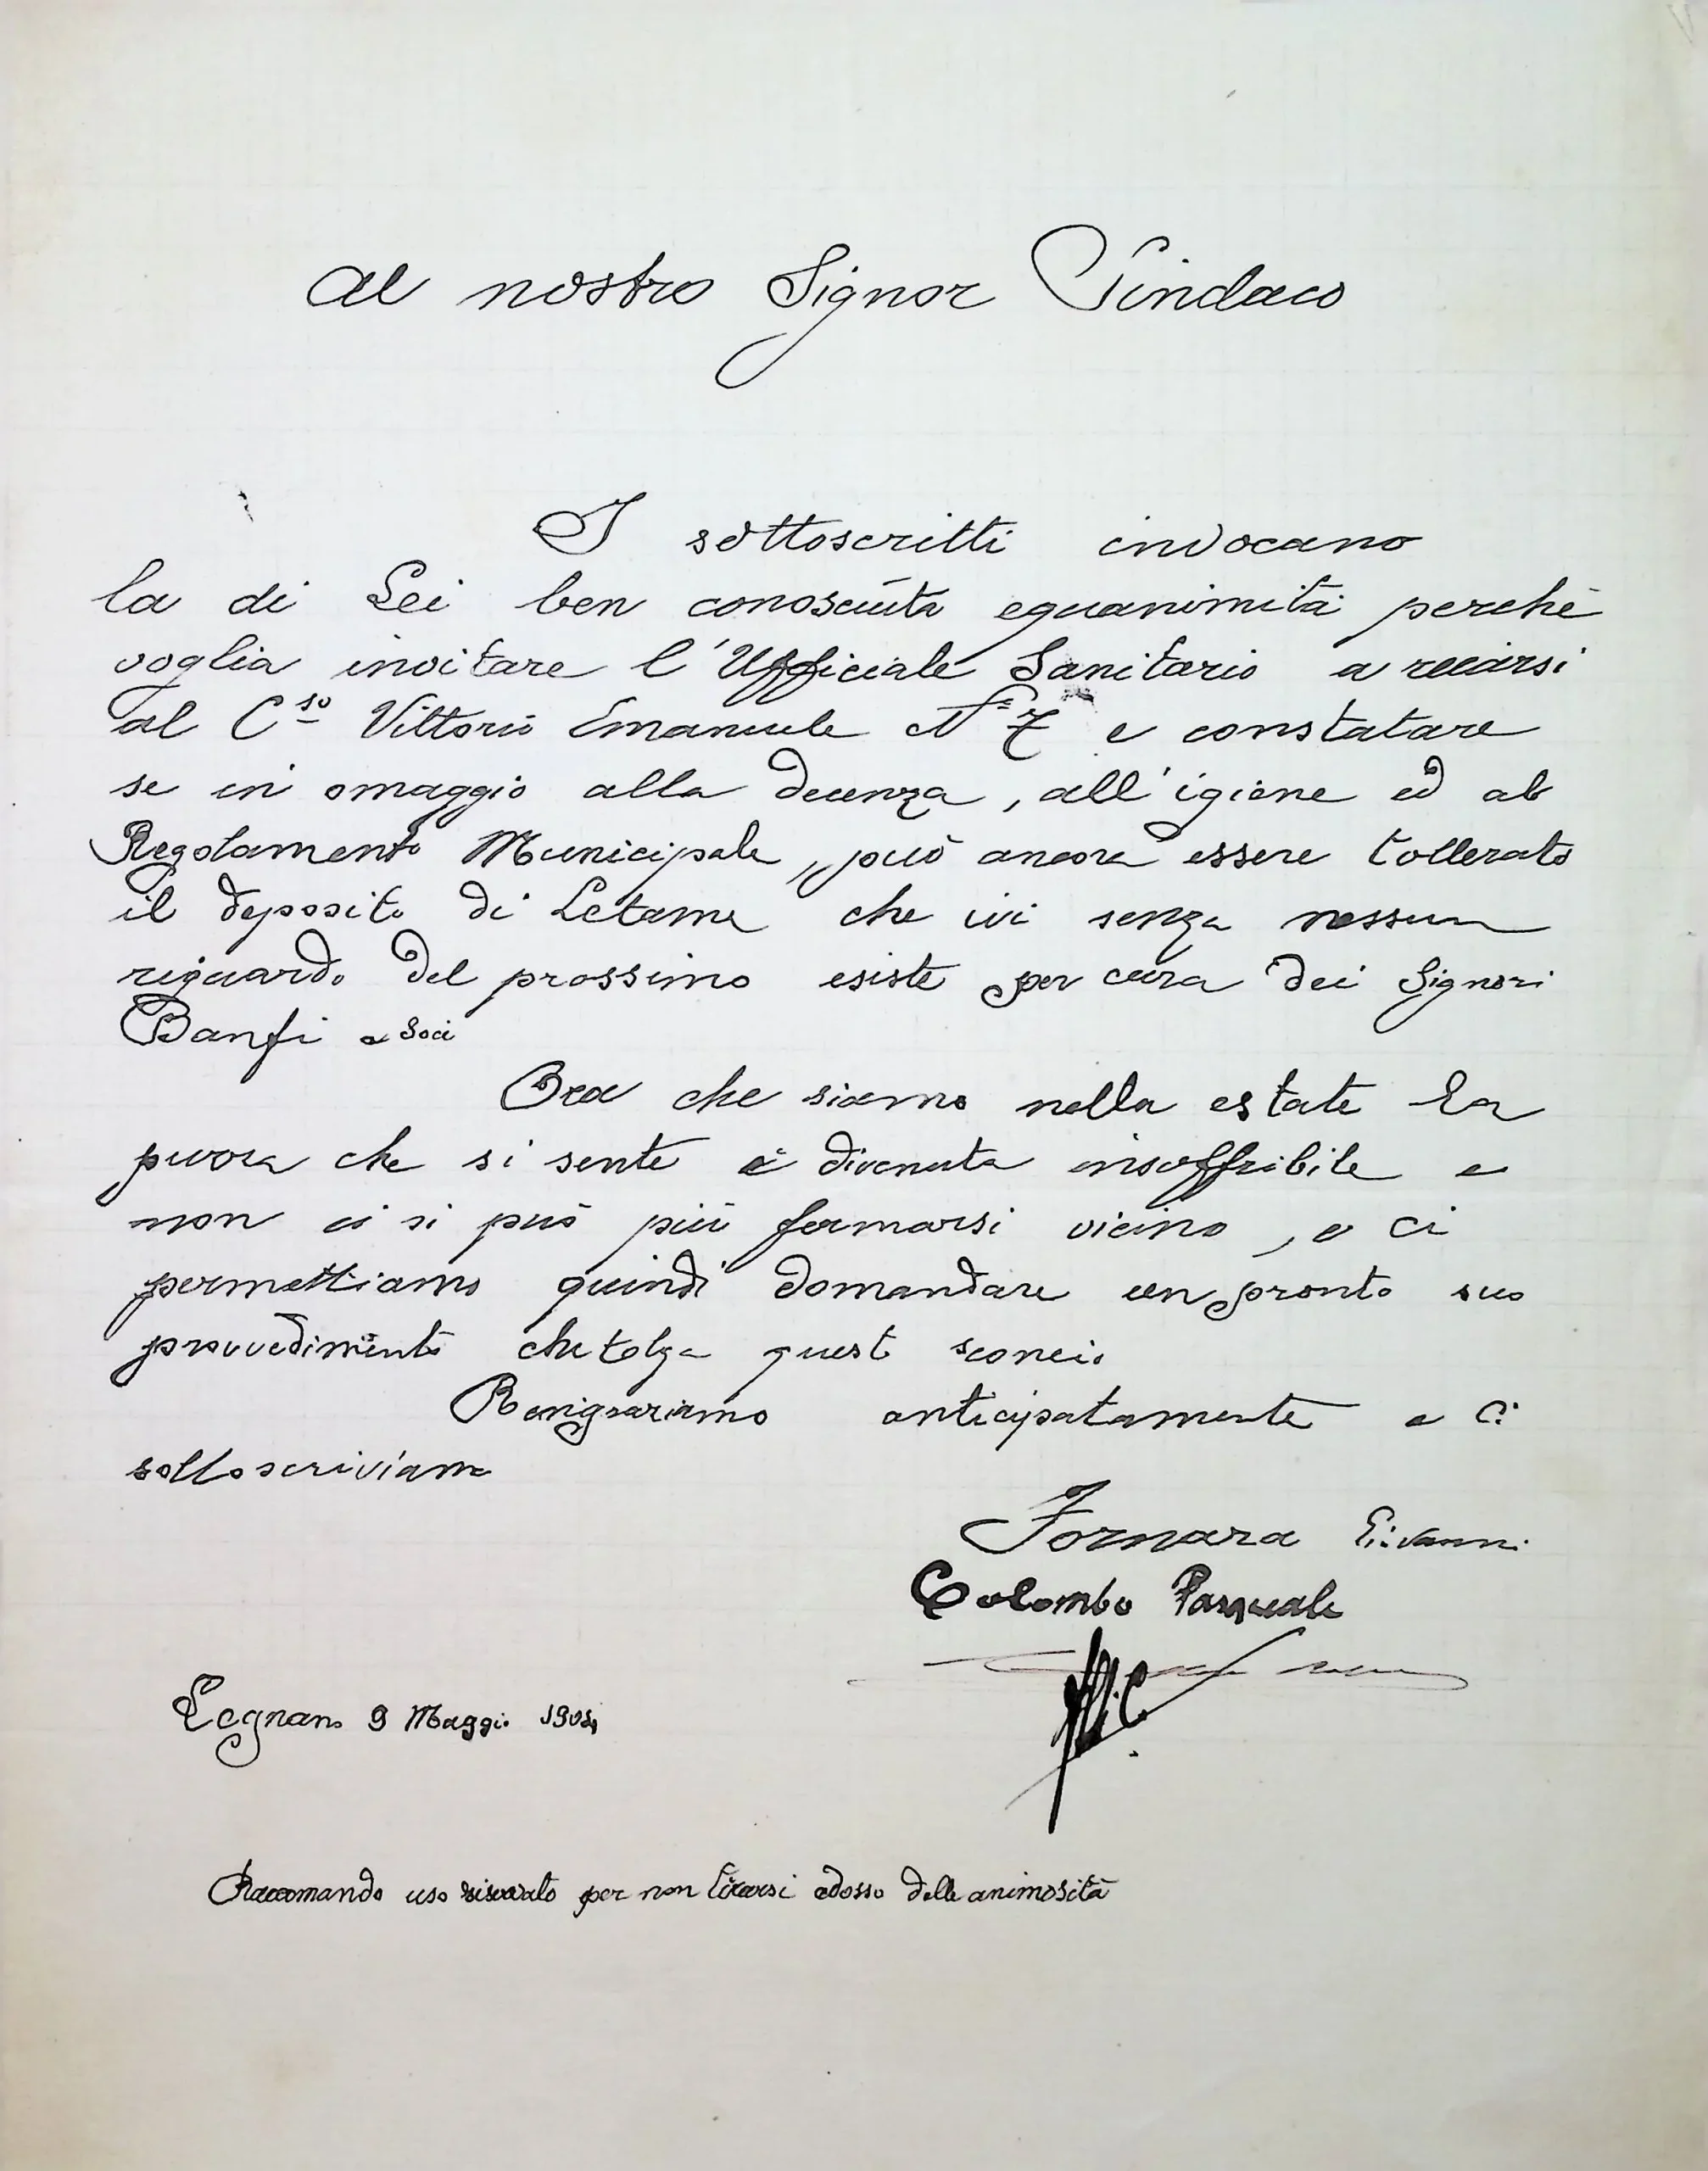 Al nostro Signor Sindaco
I sottoscritti invocano
la di Lei ben conosciuta equanimità perchè
voglia invitare l'Ufficiale Sanitario a recarsi
al C.so Vittorio Emanuele N° 7 e constatare
se in omaggio alla decenza, all'igiene ed al
Regolamento Municipale, può ancora essere tollerato
il deposito di Letame che ivi senza nessun
riguardo del prossimo esiste per cura dei Signori
Banfi e Soci
Ora che siamo nella estate la
puzza che si sente è divenuta insoffribile e
non ci si può più fermarsi vicino, e ci
permettiamo quindi domandare un pronto suo
provvedimento che tolga questo sconcio
Ringraziamo anticipatamente e ci
sottoscriviamo
Fornara Giovanni
Colombo Pasquale
Legnano 9 Maggio 1904
Raccomando uso riservato per non tirarsi adosso delle animosità